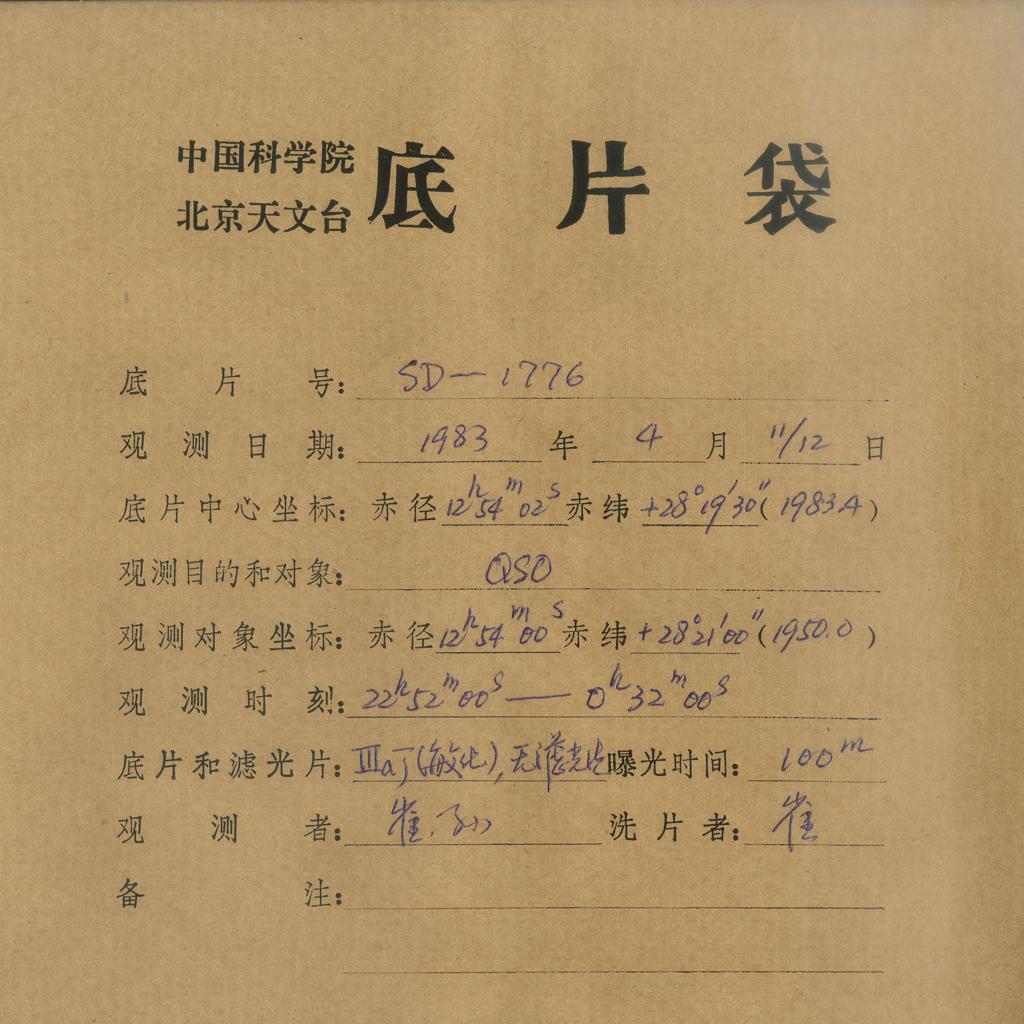 中国科学院
北京天文台
底片袋
底片号: SD—1776
观测日期: 1983 年 4 月 11/12 日
底片中心坐标: 赤径 12h54m02s 赤纬 +28°19′30″ (1983.4)
观测目的和对象: QSO
观测对象坐标: 赤径 12h54m00s 赤纬 +28°21′00″ (1950.0)
观测时刻: 22h52m00s — 0h32m00s
底片和滤光片: ⅢaJ(敏化),无滤光片 曝光时间: 100m
观测者: 崔.孙 洗片者: 崔
备注: